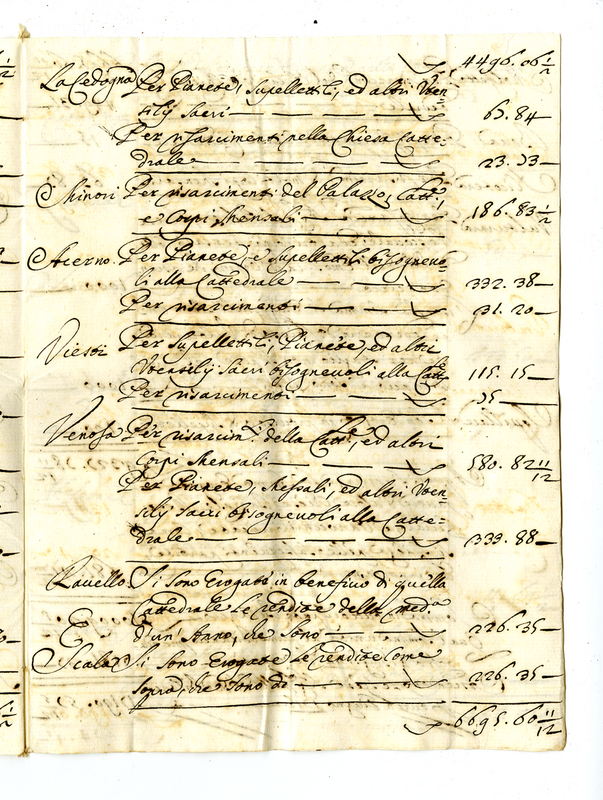 4496.06 1/2
La Cedogna Per Pianete, Supellettili, ed altri Vten=
silij Sacri 63.84
Per risarcimenti nella Chiesa Catte=
drale 23.33
Minori Per risarcimenti del Palazzo, Catt.le,
e Corpi Mensali 186.83 1/2
Acerno Per Pianete, e Supellettili bisognevo=
li alla Cattedrale 332.38
Per risarcimenti 31.20
Viesti Per Supellettili, Pianete, ed altri
Vtensilij Sacri bisognevoli alla Catt.le 115.15
Per risarcimenti 35
Venosa Per risarcim.ti della Catt.le, ed altri
Corpi Mensali 580.82 11/12
Per Pianete, Messali, ed altri Vten=
silij Sacri bisognevoli alla Catte=
drale 339.88
Ravello Si sono erogate in beneficio di quella
Cattedrale le rendite della med.a
d'un' Anno, che sono 226.35
E
Scala Si sono erogate le rendite come
sopra, che sono di 226.35
6695.60 11/12